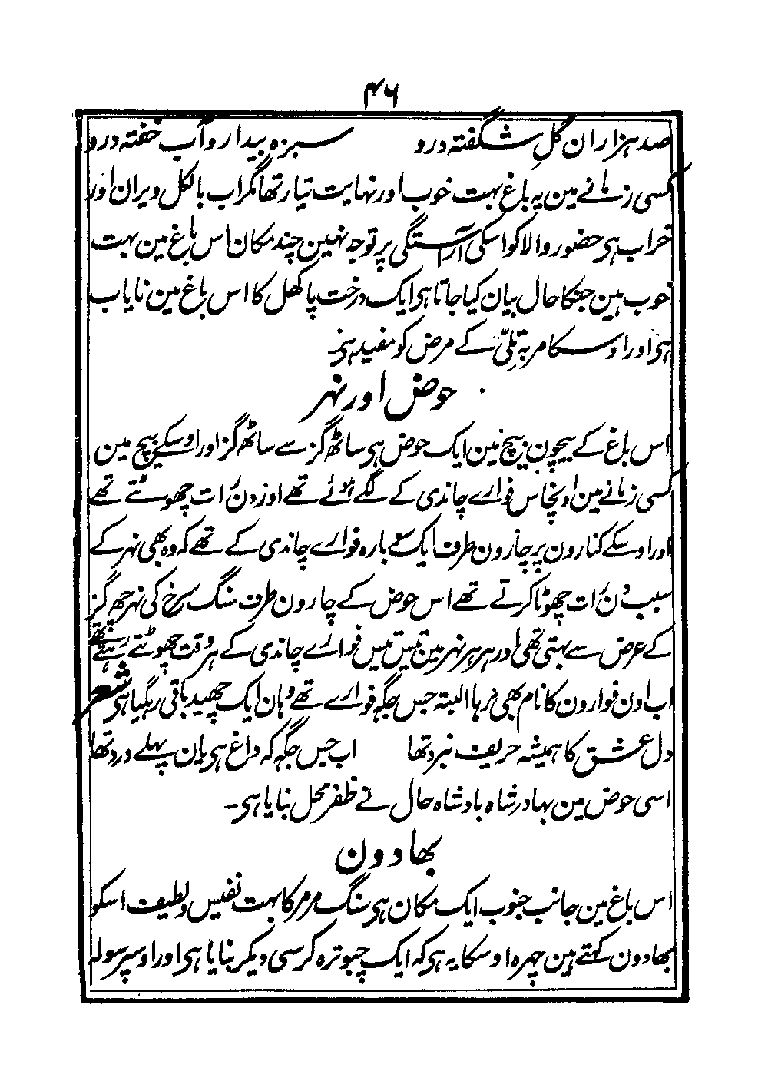 ۴۶
صد ہزاران گلِ شگفتہ درو سبزہ بیدار و آب خفتہ درو
کسی زمانے مین یہ باغ بہت خوب اور نہایت تیار تھا مگر اب بالکل ویران اور
خراب ہی حضور والا کو اسکی آراستگی پر توجہ نہین چند مکان اس باغ مین بہت
خوب ہین جنکا حال بیان کیا جاتا ہی ایک درخت پاکھل کا اس باغ مین نایاب
ہی اور اوسکا مربہ تلی کے مرض کو مفید ہی۔
حوض اور نہر
اس باغ کے بیچون بیچ مین ایک حوض ہی ساٹھ گز سے ساٹھ گز اور اوسکے بیچ مین
کسی زمانے مین اونچاس فوارے چاندی کے لگے ہوئے تھے اور دن رات چھوٹتے تھے
اور اوسکے کنارون پر چارون طرف ایک سے بارہ فوارے چاندی کے تھے کہ وہ بھی نہر کے
سبب دن رات چھوٹا کرتے تھے اس حوض کے چارون طرف سنگ سرخ کی نہر چھ گز
کے عرض سے بہتی تھی اور ہر ہر نہر مین تیس تیس فوارے چاندی کے ہر وقت چھوٹتے رہتے تھے
اب اون فوارون کا نام بھی نرہا البتہ جس جگہ فوارے تھے وہان ایک چھید باقی رہگیا ہی شعر
دل عشق کا ہمیشہ حریف نبرد تھا اب جس جگہ کہ داغ ہی یان پہلے درد تھا
اسی حوض مین بہادر شاہ بادشاہ حال نے ظفر محل بنایا ہی۔
بھادون
اس باغ مین جانب جنوب ایک مکان ہی سنگ مرمر کا بہت نفیس و لطیف اسکو
بھادون کہتے ہین چہرہ اوسکا یہ ہی کہ ایک چبوترہ کرسی دیکر بنایا ہی اور اوسپر سولہ